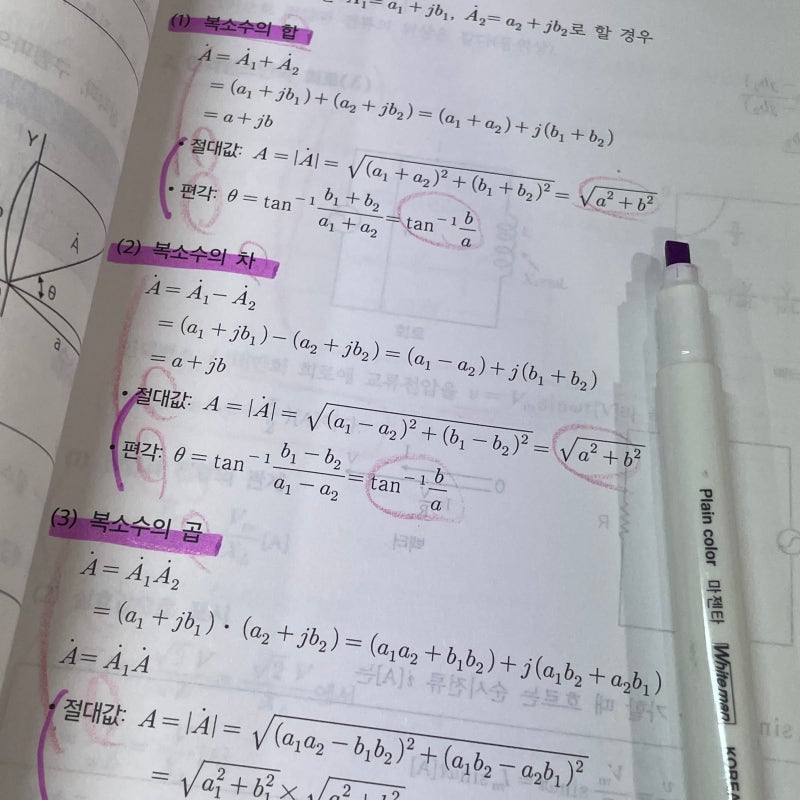 Ȧ₁=a₁+jb₁, Ȧ₂=a₂+jb₂로 할 경우
(1) 복소수의 합
Ȧ=Ȧ₁+Ȧ₂
=(a₁+jb₁)+(a₂+jb₂)=(a₁+a₂)+j(b₁+b₂)
=a+jb
• 절대값: A=|Ȧ|=√((a₁+a₂)²+(b₁+b₂)²)=√(a²+b²)
• 편각: θ=tan⁻¹ (b₁+b₂)/(a₁+a₂)=tan⁻¹ b/a
(2) 복소수의 차
Ȧ=Ȧ₁-Ȧ₂
=(a₁+jb₁)-(a₂+jb₂)=(a₁-a₂)+j(b₁+b₂)
=a+jb
• 절대값: A=|Ȧ|=√((a₁-a₂)²+(b₁-b₂)²)=√(a²+b²)
• 편각: θ=tan⁻¹ (b₁-b₂)/(a₁-a₂)=tan⁻¹ b/a
(3) 복소수의 곱
Ȧ=Ȧ₁Ȧ₂
=(a₁+jb₁)·(a₂+jb₂)=(a₁a₂+b₁b₂)+j(a₁b₂+a₂b₁)
Ȧ=Ȧ₁Ȧ
• 절대값: A=|Ȧ|=√((a₁a₂-b₁b₂)²+(a₁b₂-a₂b₁)²)
=√(a₁²+b₁²)×√(a₂²+b₂²)
Y
Ȧ
θ
a
Plain color 마젠타 Whiteman KOREA